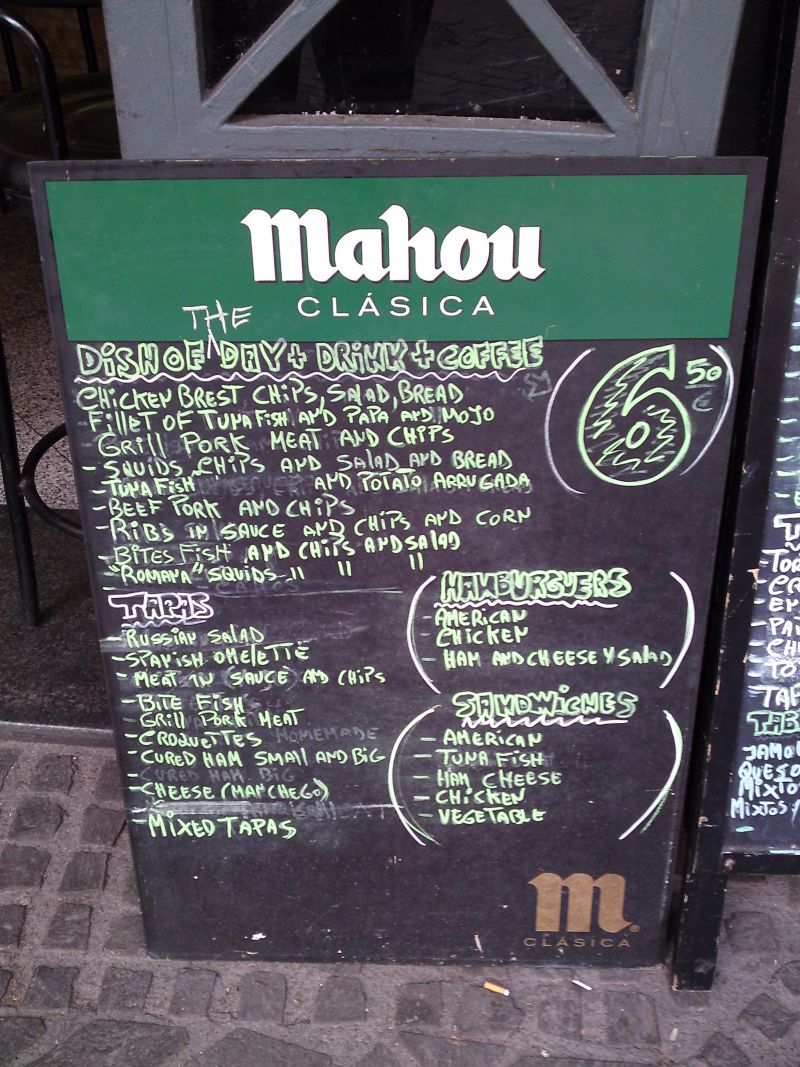 Mahou
CLÁSICA
THE
DISH OF DAY + DRINK + COFFEE
6 50 €
CHICKEN BREST CHIPS, SALAD, BREAD
- FILLET OF TUNA FISH AND PAPA AND MOJO
GRILL PORK MEAT AND CHIPS
- SQUIDS, CHIPS AND SALAD AND BREAD
- TUNA FISH AND POTATO ARRUGADA
- BEEF PORK AND CHIPS
- RIBS IN SAUCE AND CHIPS AND CORN
- BITES FISH AND CHIPS AND SALAD
- "ROMANA" SQUIDS " " "
TAPAS
- RUSSIAN SALAD
- SPANISH OMELETTE
- MEAT IN (SAUCE) AND CHIPS
- BITE FISH
- GRILL PORK MEAT
- CROQUETTES HOMEMADE
- CURED HAM SMALL AND BIG
- CURED HAM BIG
- CHEESE (MANCHEGO)
- MIXED TAPAS
HAMBURGUERS
- AMERICAN
- CHICKEN
- HAM AND CHEESE Y SALAD
SANDWICHES
- AMERICAN
- TUNA FISH
- HAM CHEESE
- CHICKEN
- VEGETABLE
m
CLÁSICA